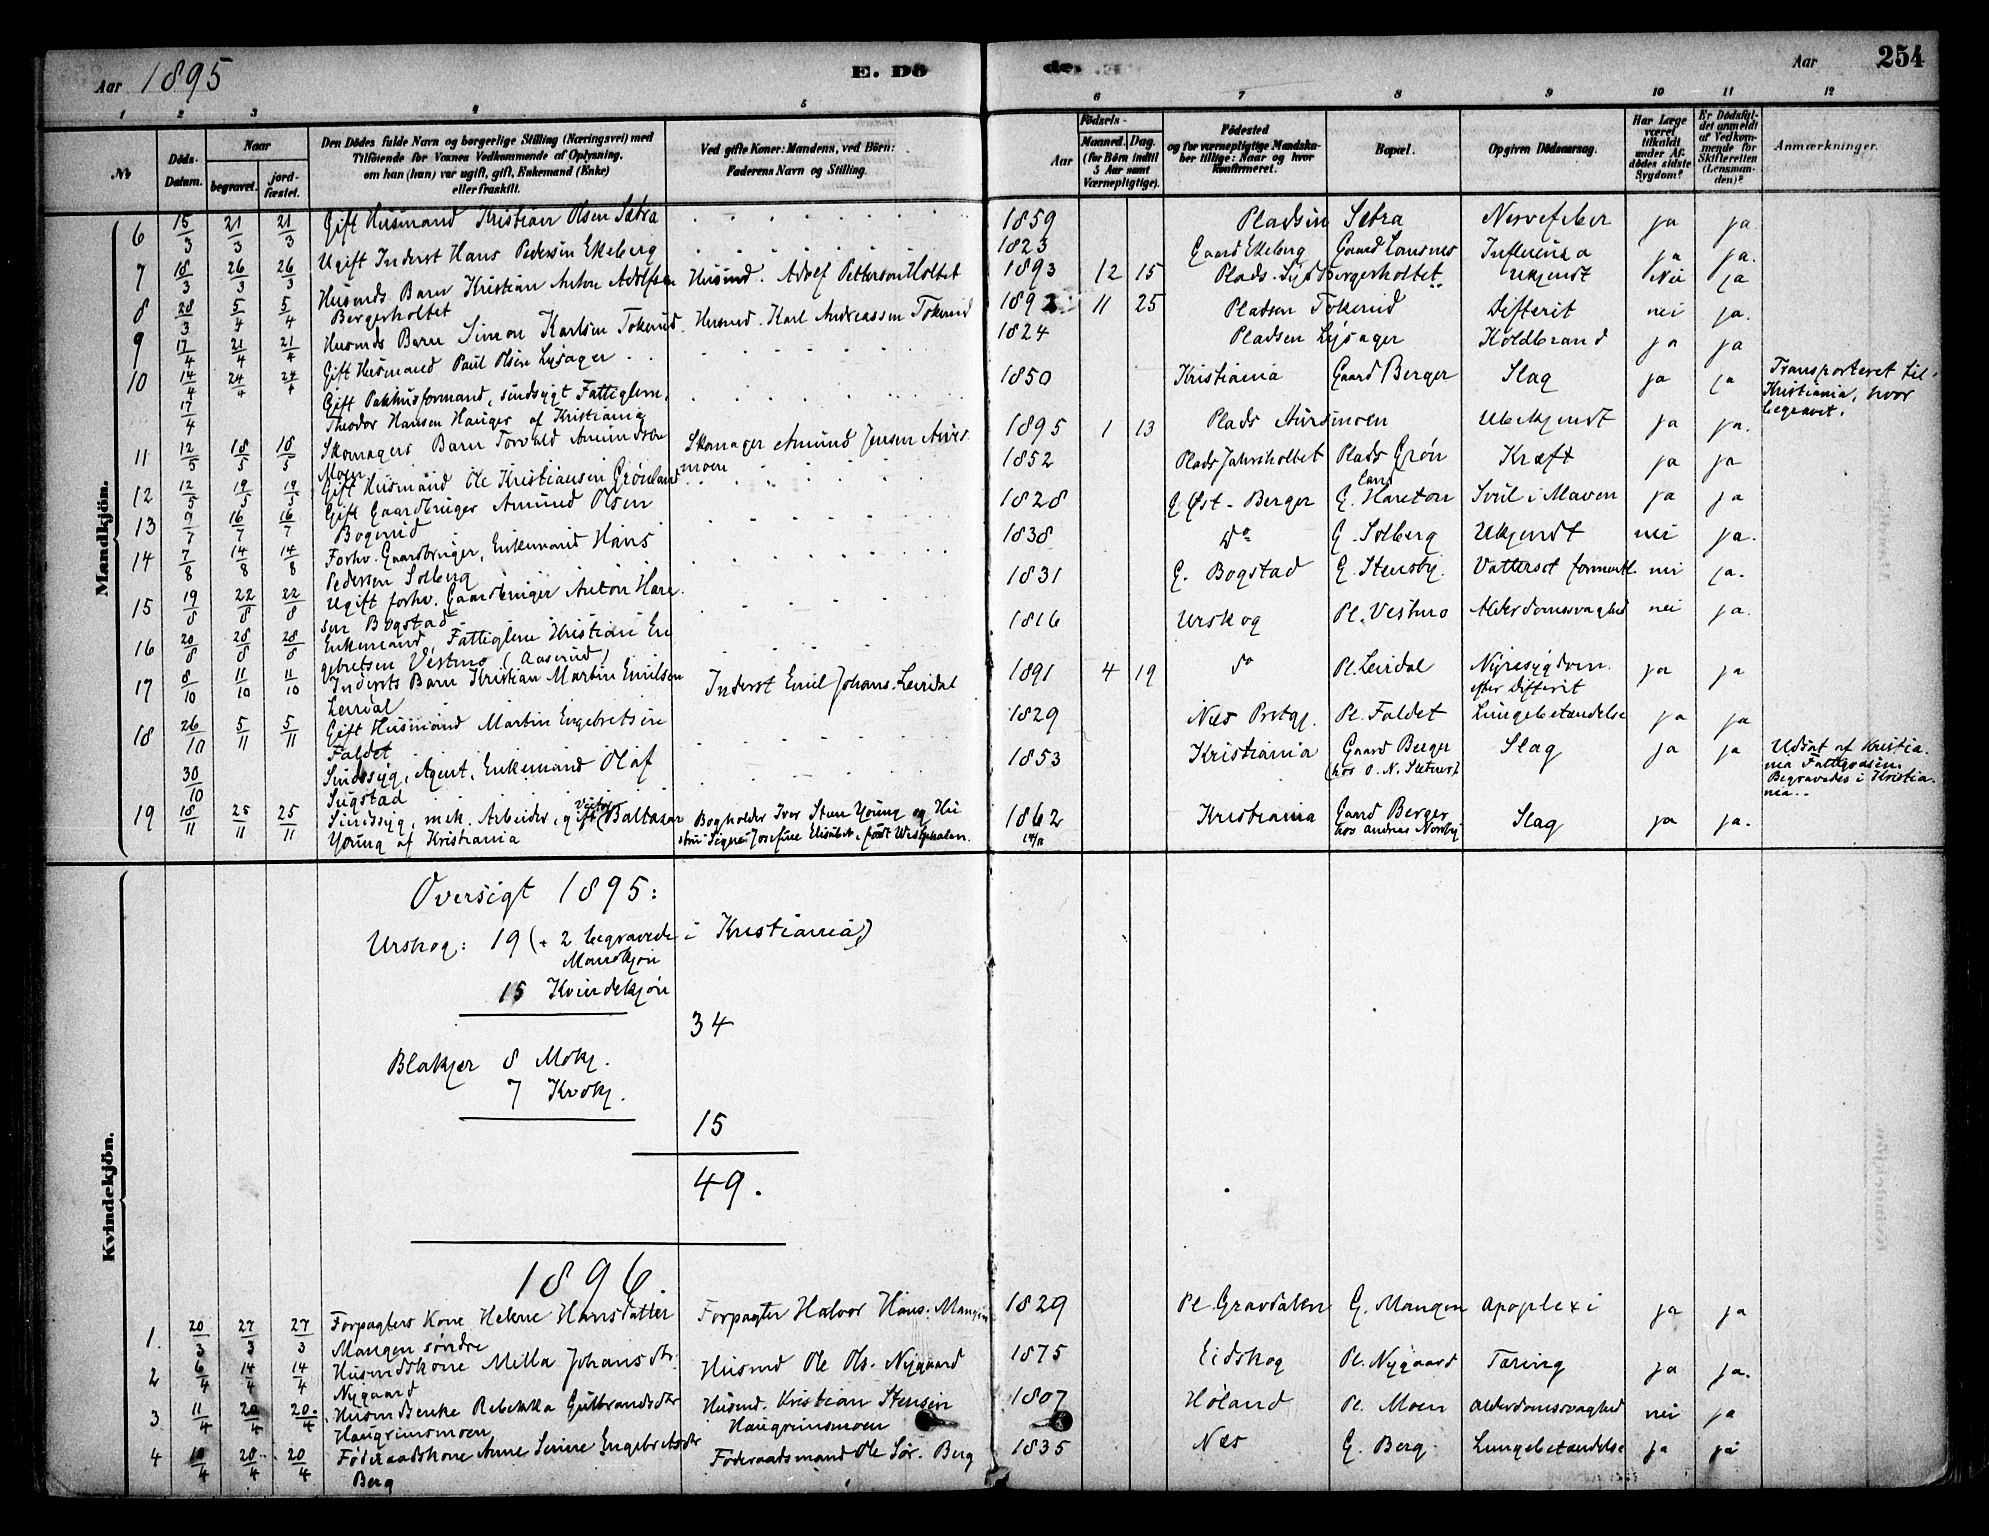 Aar 1895
E. Dö
de. E.
Aar
254
1 2 3 4 5 6 7 8 9 10 11 12
No
Döds-Datum.
Naar
begravet.
jord-fæstet.
Den Dödes fulde Navn og borgerlige Stilling (Næringsvei) med
Tilföiende for Voxnes Vedkommende af Oplysning,
om han (hun) var ugift, gift, Enkemand (Enke)
eller fraskilt.
Ved gifte Koner: Mandens, ved Börn:
Faderens Navn og Stilling.
Födsels-
Aar
Maaned.
Dag.
(for Börn indtil
5 Aar samt
Værnepligtige).
Födested
og for værnepligtige Mandska-
ber tillige: Naar og hvor
konfirmeret.
Bopæl.
Opgiven Dödsaarsag.
Har Læge
været
tilkaldt
under Af-
dödes sidste
Sygdom?
Er Dödsfal-
det anmeldt
af Vedkom-
mende for
Skifteretten
(Lensman-
den)?
Anmærkninger.
Mandkjön.
6 15/3 21/3 21/3 Gift Husmand Kristian Olsen Sætra 1859 Pladsen Sætra Nervefeber ja ja
7 18/3 26/3 26/3 Ugift Inderst Hans Pedersen Ekeberg 1823 Gaard Ekeberg Gaard Lousnes Influensa ja ja.
8 28/3 5/4 5/4 Husmds Barn Kristian Anton Adolfsen Husmd. Adolf Petterson Holtet 1893 12 15 Plads Bergerholtet Ukjendt Nei ja
Bergerholtet
9 17/4 21/4 21/4 Husmds Barn Simon Karlsen Tokerud. Husmd. Karl Andreassen Tokerud 11 25 Pladsen Tokerud Difterit nei ja.
10 14/4 24/4 24/4 Gift Husmand Paul Olsen Lysager 1824 Pladsen Lysager Koldbrand ja ja
17/4 Gift Pakhusformand, sindsygt Fattiglem, 1850 Kristiania Gaard Berger Slag ja ja Transporteret til
Theodor Hansen Hauger af Kristiania Kristiania, hvor
begravet.
11 12/5 18/5 18/5 Skomagers Barn Torvald Amundsen Skomager Amund Jensen 1895 1 13 Plads Aursmoen Ubekjendt ja ja.
Moen moen
12 12/5 19/5 19/5 Gift Husmand Ole Kristiansen Grønland 1852 Plads Jahrsholtet Plads Grøn Kræft ja ja
land
13 9/7 16/7 16/7 Gift Gaardbruger Amund Olsen 1828 G. Øst-Berger G. Hareton Svul i Maven ja ja
Bogerud
14 7/8 14/8 14/8 Forhv. Gaardbruger, Enkemand Hans 1838 Do G. Solberg Ukjendt nei ja.
Pedersen Solberg
15 19/8 22/8 22/8 Ugift forhv. Gaardbruger Anton Han 1831 G. Bogstad G. Stensby. Vattersot nei ja.
sen Bogstad
16 20/8 28/8 28/8 Enkemand, Fattiglem Kristian En 1816 Urskog Pl. Vestmo Alderdomssvaghed nei ja.
gebretsen Vestmo (Aaserud)
17 8/10 11/10 11/10 Indersts Barn Kristian Martin Emilsen Inderst Emil Johans. Leirdal 1891 4 19 do Pl. Leirdal Nyresygdom ja ja
Leirdal efter Difterit
18 26/10 5/11 5/11 Gift Husmand Martin Engebretsen 1829 Næs Prstgj. Pl. Faldet Lungebetændelse ja ja
Faldet
30/10 Sindssyg, Agent, Enkemand Olaf 1853 Kristiania Gaard Berger Slag ja ja Udsat af Kristia
Sugstad (hos O. N. nia Fattigvæsen.
Begravedes i Kristia
nia.
19 18/11 25/11 25/11 Sindssyg, mek. Arbeider, gift Victor Baltazar Bogholder Iver Steen Young og Hu 1862 Kristiania Gaard Berger Slag ja ja.
Young af Kristiania stru Signe Josefine Elisabet, født Westphalen. 14/11 hos Andreas Nordby
Kvindekjön.
Oversigt 1895:
Urskog: 19 (+ 2 begravede i Kristiania)
Mandkjøn
15 Kvindekjøn
34
Blakjer 8 Mdkj.
7 Kvdkj.
15
49.
1896.
1. 20/3 27/3 27/3 Forpagters Kone Helene Hansdatter Forpagter Halvor Hans. Mangen 1829 Pl. Gravdalen G. Mangen Apoplexi ja ja
Mangen søndre
2 6/4 14/4 14/4 Husmdskone Milla Johansdtr. Husmd Ole Ols. Nygaard 1875 Eidskog Pl. Nygaard Tæring ja ja.
Nygaard
3 11/4 20/4 20/4 Husmdsenke Rebekka Gulbrandsdtr Husmd. Kristian Stensen 1807 Høland Pl. Moen Alderdomssvaghed nei ja
Haugrimsmoen Haugrimsmoen
4 10/4 20/4 20/4 Føderaadskone Anne Serine Engebretsdtr Føderaadsmand Ole Sør. Berg 1835 Næs G. Berg Lungebetændelse ja ja
Berg